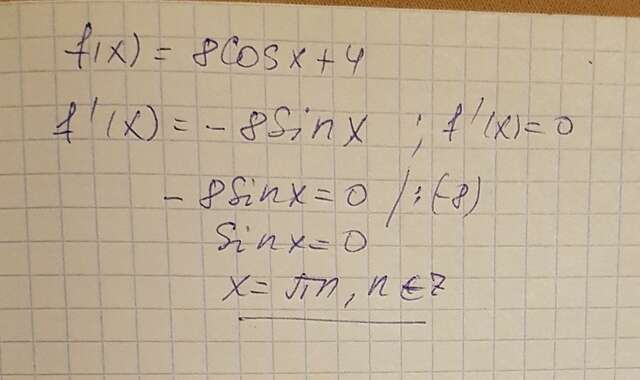 f(x) = 8cosx+4
f'(x) = -8sinx ; f'(x)=0
-8sinx=0 /:(-8)
sinx=0
x= πn, n∈Z